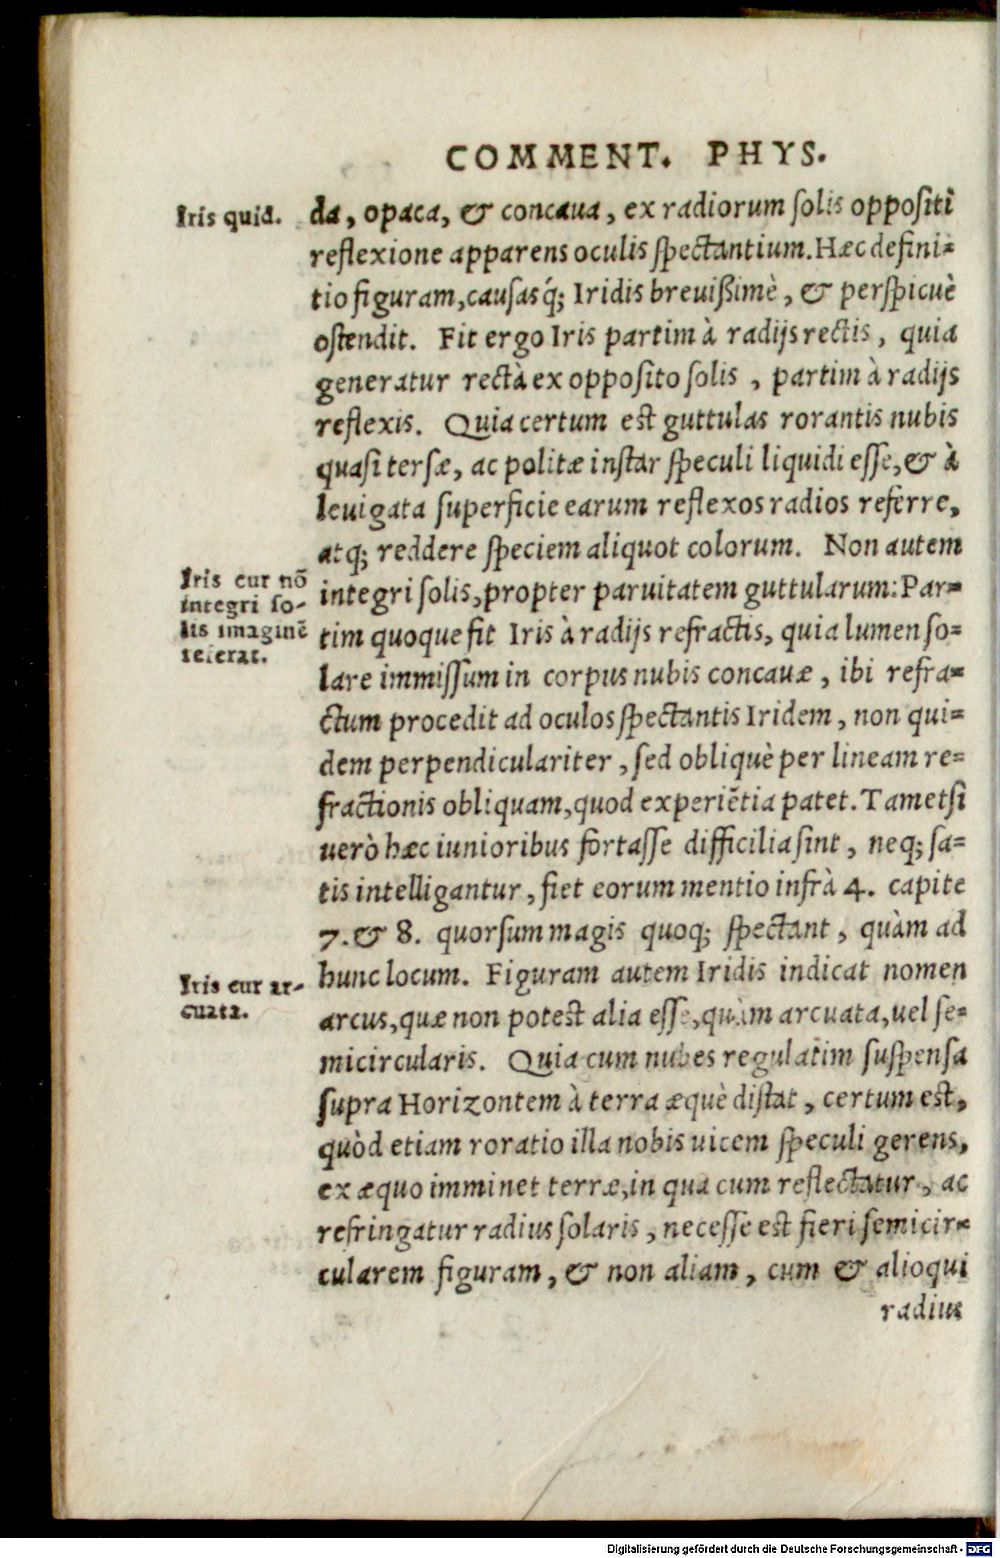 COMMENT. PHYS.
Iris quid.
da, opaca, & concaua, ex radiorum ſolis oppoſiti
reflexione apparens oculis ſpectantium. Hæc defini-
tio figuram, cauſasq́; Iridis breuißimè, & perſpicuè
oſtendit. Fit ergo Iris partim à radijs rectis, quia
generatur rectà ex oppoſito ſolis, partim à radijs
reflexis. Quia certum est guttulas rorantis nubis
quaſi terſæ, ac politæ inſtar ſpeculi liquidi eſſe, & à
leuigata ſuperficie earum reflexos radios referre,
atq; reddere ſpeciem aliquot colorum. Non autem
Iris cur nō
integri ſo-
lis imaginē
referat.
integri ſolis, propter paruitatem guttularum: Par-
tim quoque fit Iris à radijs refractis, quia lumen ſo-
lare immiſſum in corpus nubis concauæ, ibi refra-
ctum procedit ad oculos ſpectantis Iridem, non qui-
dem perpendiculariter, ſed obliquè per lineam re-
fractionis obliquam, quod experiẽtia patet. Tametſi
uerò hæc iunioribus fortaſſe difficilia ſint, neq; ſa-
tis intelligantur, fiet eorum mentio infrà 4. capite
7. & 8. quorſum magis quoq; ſpectant, quàm ad
Iris cur ar-
cuata.
hunc locum. Figuram autem Iridis indicat nomen
arcus, quæ non potest alia eſſe, quàm arcuata, uel ſe-
micircularis. Quia cum nubes regulatim ſuſpenſa
ſupra Horizontem à terra æquè diſtat, certum est,
quòd etiam roratio illa nobis uicem ſpeculi gerens,
ex æquo imminet terræ, in qua cum reflectatur, ac
refringatur radius ſolaris, neceſſe est fieri ſemicir-
cularem figuram, & non aliam, cum & alioqui
radius
Digitalisierung gefördert durch die Deutsche Forschungsgemeinschaft - DFG